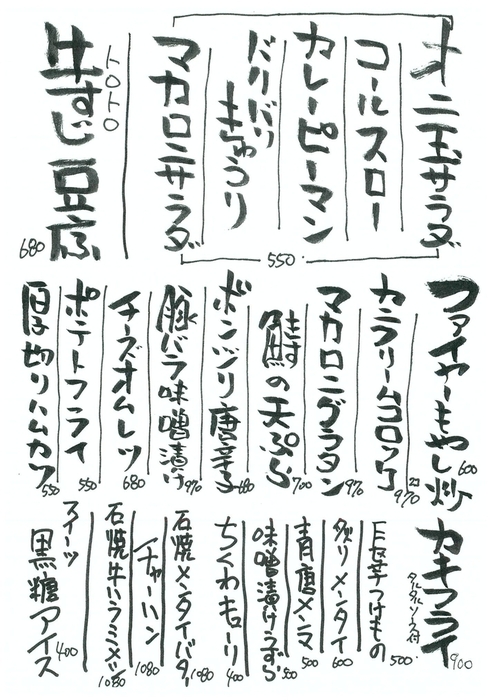 オニ玉サラダ
コールスロー
カレーピーマン
バリバリ
きゅうり
マカロニサラダ
550
トロトロ
牛すじ豆腐
680
ファイヤーもやし炒
600
カニクリームコロッケ
2コ
970
マカロニグラタン
970
鱚の天ぷら
700
ボンジリ唐辛子
680
豚バラ味噌漬け
970
チーズオムレツ
680
ポテトフライ
550
厚切りハムカツ
550
カキフライ
タルタルソース付
900
長芋つけもの
500
炙りメンタイ
600
青唐メンマ
500
味噌漬けうずら
500
ちくわキューリ
400
石焼メンタイバター
1080
チャーハン
1080
石焼牛ハラミメシ
1080
スイーツ
黒糖アイス
400